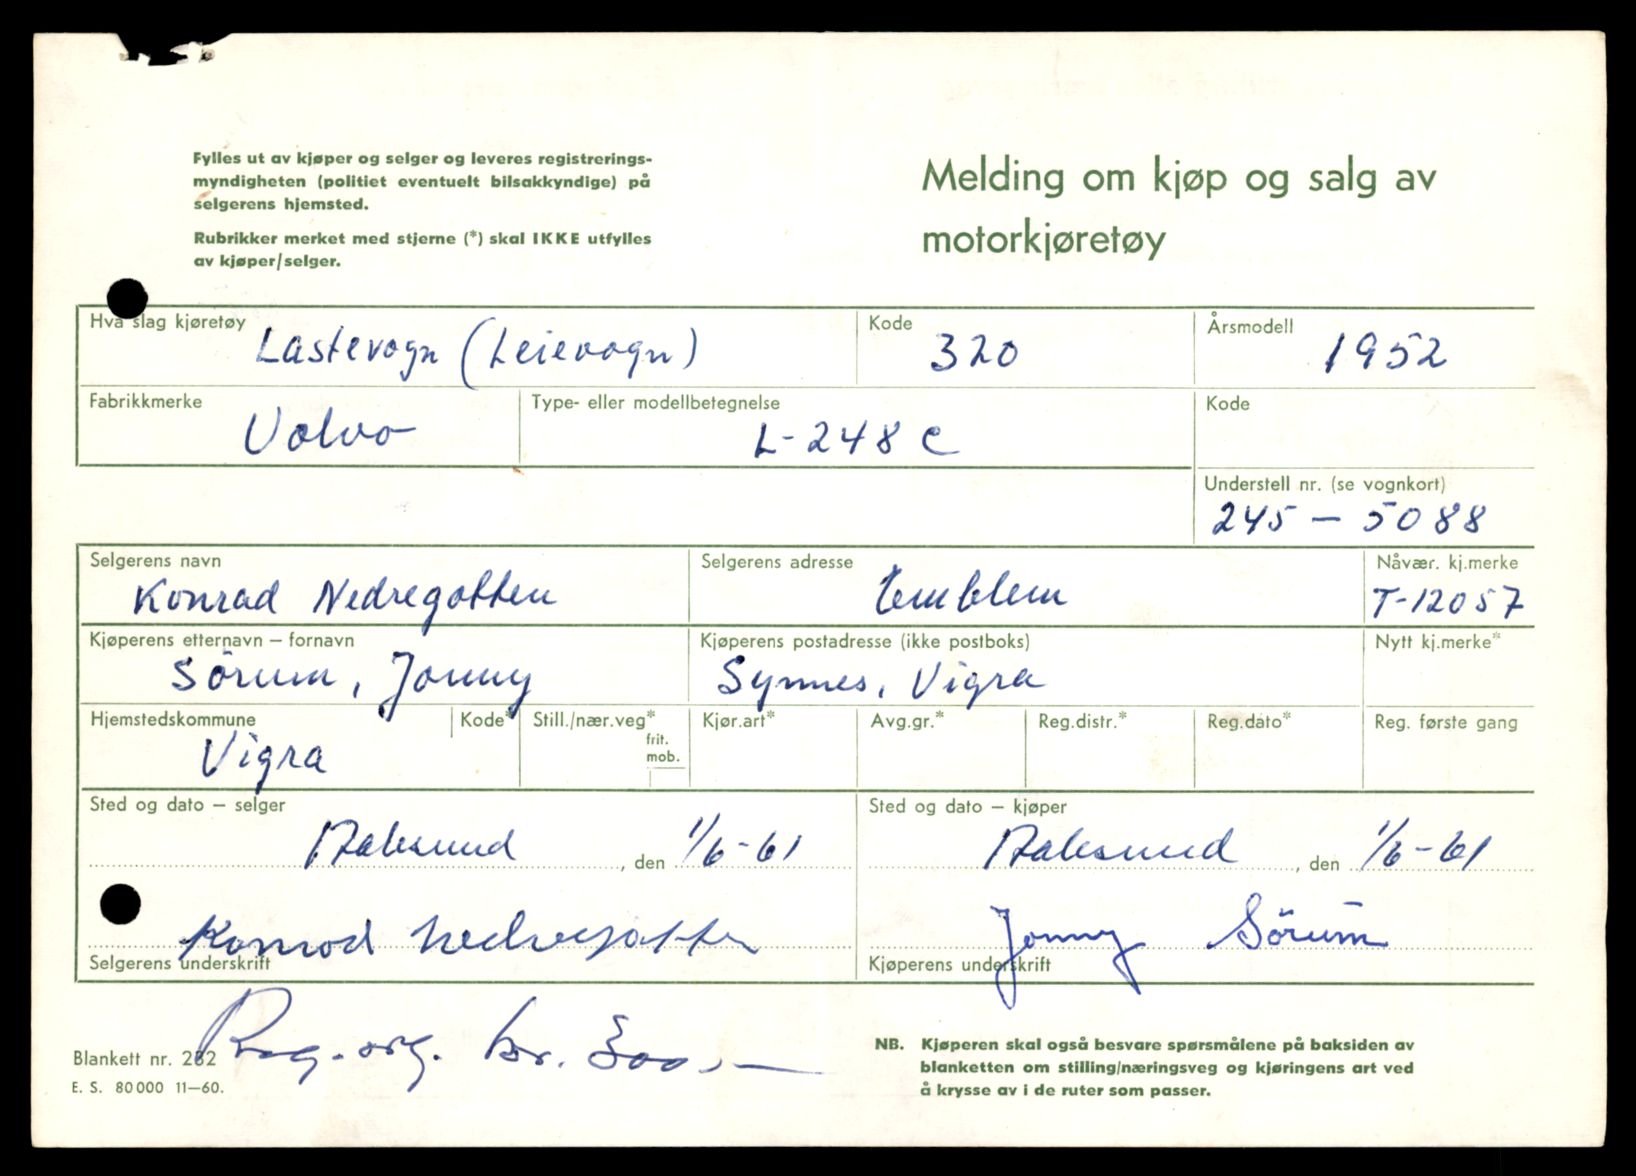 Fylles ut av kjøper og selger og leveres registrerings-
myndigheten (politiet eventuelt bilsakkyndige) på
selgerens hjemsted.
Rubrikker merket med stjerne (*) skal IKKE utfylles
av kjøper/selger.
Melding om kjøp og salg av
motorkjøretøy
Hva slag kjøretøy
Lastevogn (Leievogn)
Kode
320
Årsmodell
1952
Fabrikkmerke
Volvo
Type- eller modellbetegnelse
L-248 C
Kode
Understell nr. (se vognkort)
245 - 5088
Selgerens navn
Konrad Nedregotten
Selgerens adresse
Emblem
Nåvær. kj.merke
T-12057
Kjøperens etternavn – fornavn
Sørum, Jonny
Kjøperens postadresse (ikke postboks)
Synnes, Vigra
Nytt kj.merke*
Hjemstedskommune
Vigra
Kode*
Still./nær.veg*
frit.
mob.
Kjør.art*
Avg.gr.*
Reg.distr.*
Reg.dato*
Reg. første gang
Sted og dato – selger
Aalesund, den 1/6-61
Sted og dato – kjøper
Aalesund, den 1/6-61
Konrad Nedregotten
Selgerens underskrift
Jonny Sörum
Kjøperens underskrift
Blankett nr. 282
E. S. 80000 11—60.
Reg. org. kr.
NB. Kjøperen skal også besvare spørsmålene på baksiden av
blanketten om stilling/næringsveg og kjøringens art ved
å krysse av i de ruter som passer.